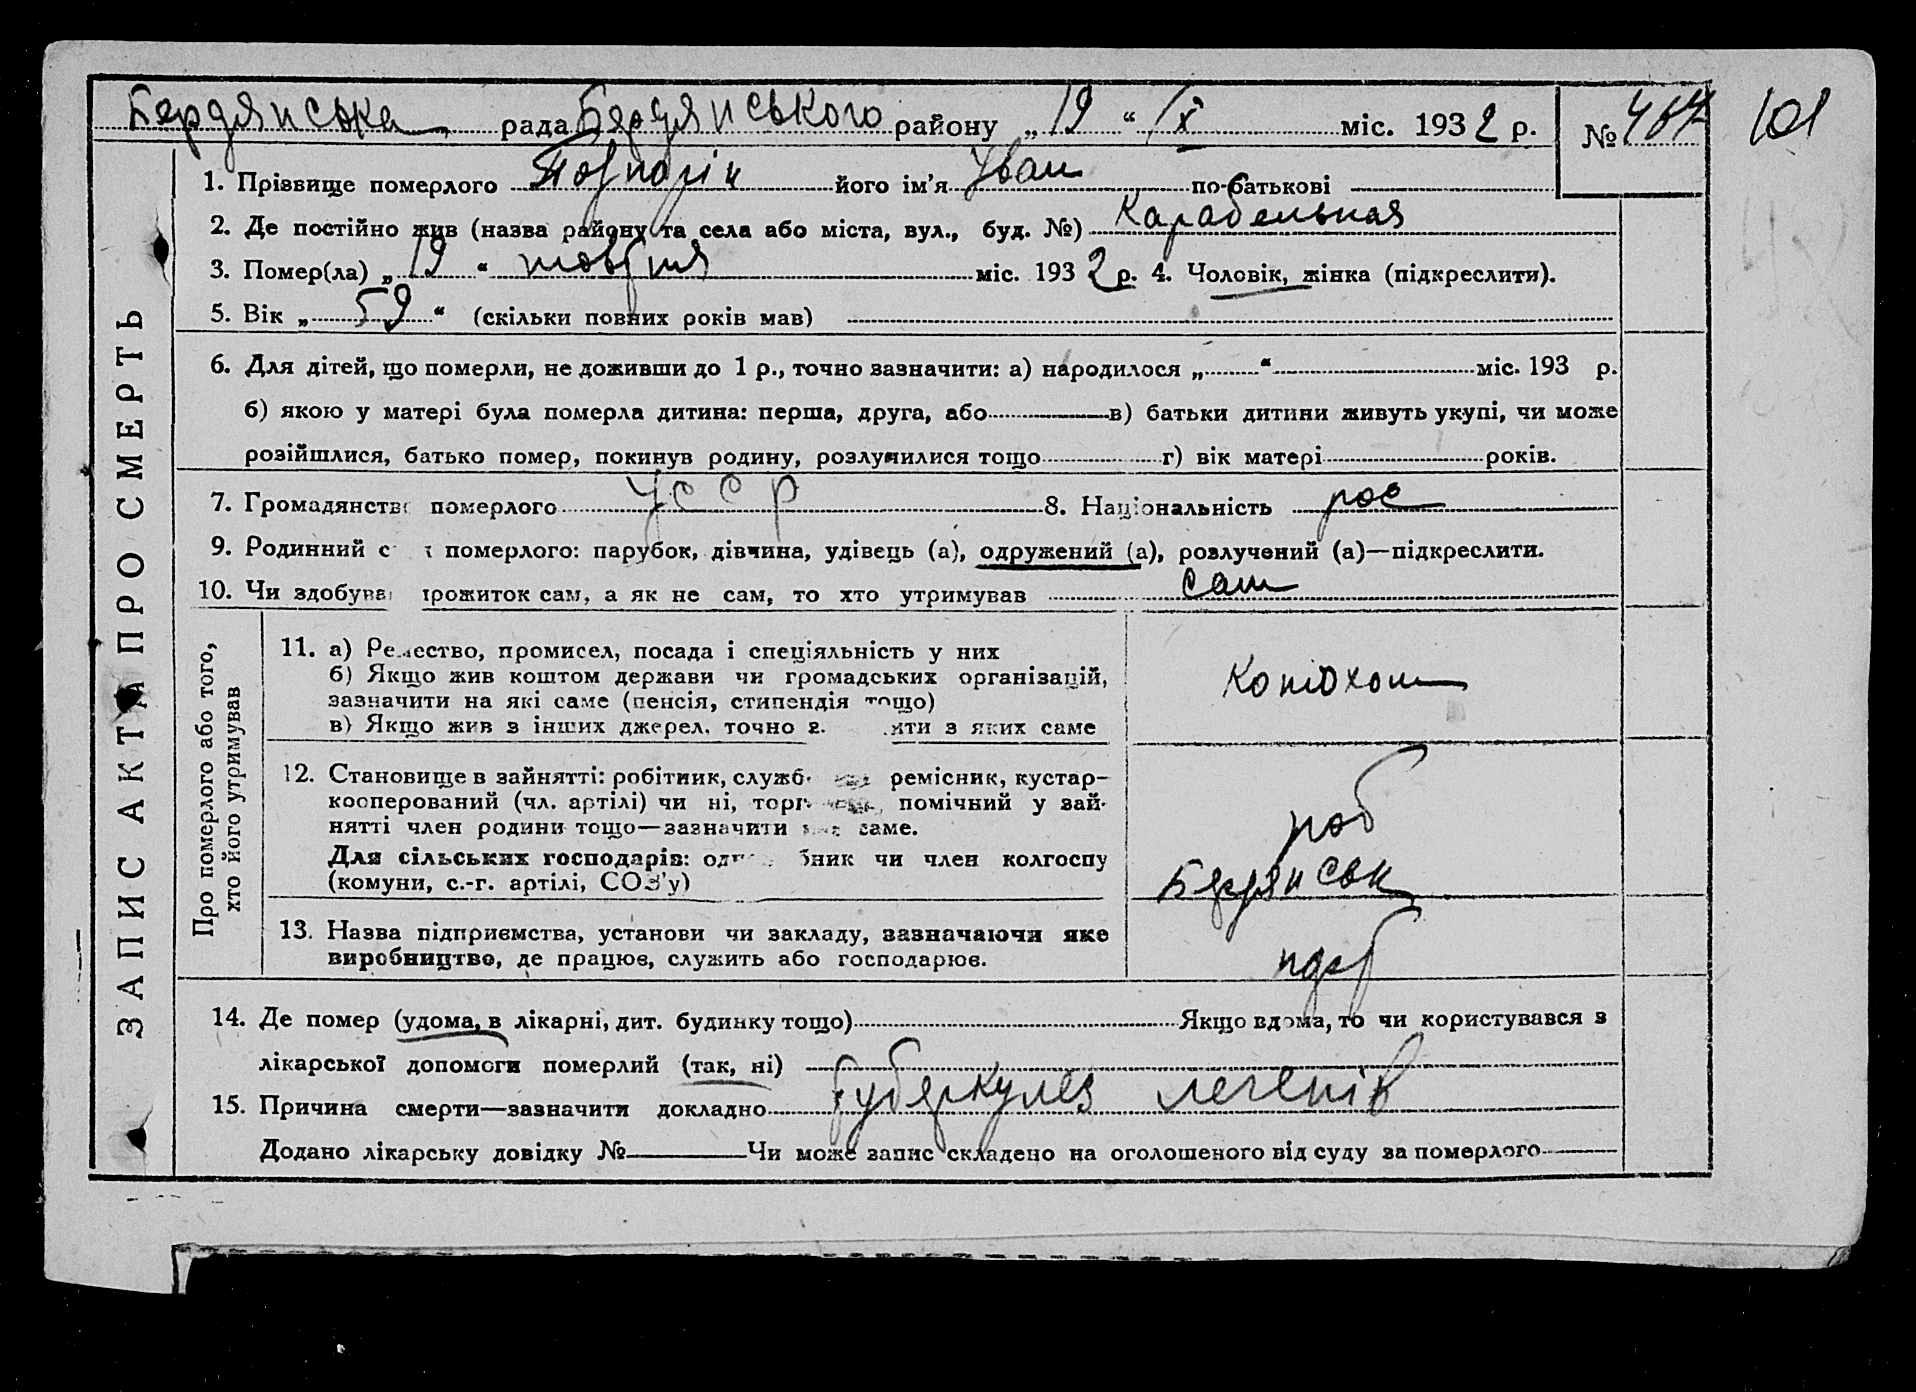 Бердянська рада Бердянського району „19“ IX міс. 1932 р. №
101
1. Прізвище померлого його ім'я Іван по-батькові
2. Де постійно жив (назва району та села або міста, вул., буд. №) Карабельная
3. Помер(ла) „19“ жовтня міс. 1932 р. 4. Чоловік, жінка (підкреслити).
5. Вік „59“ (скільки повних років мав)
6. Для дітей, що померли, не доживши до 1 р., точно зазначити: а) народилося „ “ міс. 193 р.
б) якою у матері була померла дитина: перша, друга, або в) батьки дитини живуть укупі, чи може
розійшлися, батько помер, покинув родину, розлучилися тощо г) вік матері років.
7. Громадянство померлого УССР 8. Національність рос
9. Родинний с померлого: парубок, дівчина, удівець (а), одружений (а), розлучений (а)—підкреслити.
10. Чи здобував прожиток сам, а як не сам, то хто утримував сам
ЗАПИС АКТА ПРО СМЕРТЬ
Про померлого або того,
хто його утримував
11. а) Ремество, промисел, посада і спеціяльність у них
б) Якщо жив коштом держави чи громадських організацій,
зазначити на які саме (пенсія, стипендія тощо)
в) Якщо жив з інших джерел, точно з яких саме
Конюхом
12. Становище в зайнятті: робітник, служб ремісник, кустар-
кооперований (чл. артілі) чи ні, торг помічний у зай-
нятті член родини тощо—зазначити саме.
Для сільських господарів: одн чи член колгоспу
(комуни, с.-г. артілі, СОЗ'у)
роб
Бердянськ
13. Назва підприємства, установи чи закладу, зазначаючи яке
виробництво, де працює, служить або господарює.
14. Де помер (удома, в лікарні, дит. будинку тощо) Якщо вдома, то чи користувався з
лікарської допомоги померлий (так, ні)
15. Причина смерти—зазначити докладно туберкулез легенів
Додано лікарську довідку № Чи може запис складено на оголошеного від суду за померлого